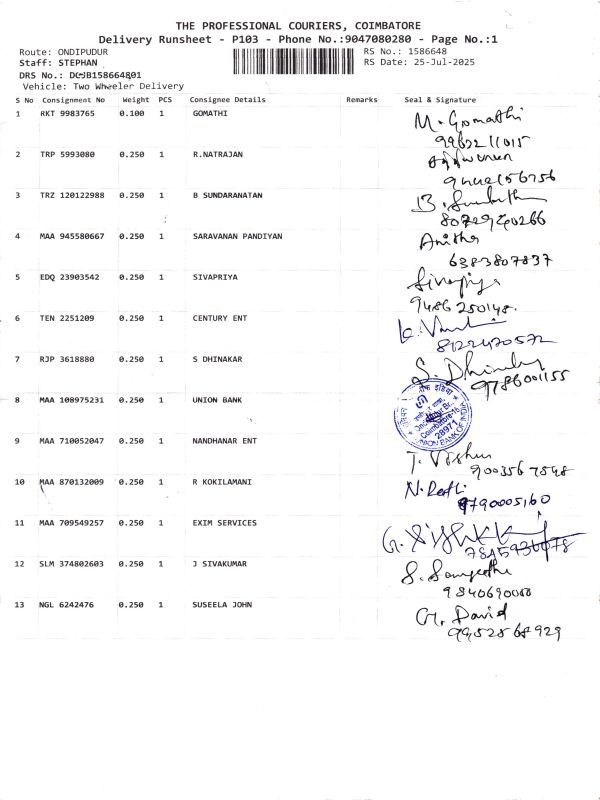 THE PROFESSIONAL COURIERS, COIMBATORE
Delivery Runsheet - P103 - Phone No.:9047080280 - Page No.:1
Route: ONDIPUDUR RS No.: 1586648
Staff: STEPHAN RS Date: 25-Jul-2025
DRS No.: DCJB158664801
Vehicle: Two Wheeler Delivery
S No Consignment No Weight PCS Consignee Details Remarks Seal & Signature
1 RKT 9983765 0.100 1 GOMATHI M. Gomathi
9962211015
2 TRP 5993080 0.250 1 R.NATRAJAN
3 TRZ 120122988 0.250 1 B SUNDARANATAN B.
4 MAA 945580667 0.250 1 SARAVANAN PANDIYAN Anitha
6383807837
5 EDQ 23903542 0.250 1 SIVAPRIYA Sivapriya
9486250148.
6 TEN 2251209 0.250 1 CENTURY ENT
8122470572
7 RJP 3618880 0.250 1 S DHINAKAR S.
9786001155
8 MAA 108975231 0.250 1 UNION BANK
Coimbatore-16
28971
UNION BANK OF INDIA
9 MAA 710052047 0.250 1 NANDHANAR ENT T. Vishnu
9003567548
10 MAA 870132009 0.250 1 R KOKILAMANI N.
9790005160
11 MAA 709549257 0.250 1 EXIM SERVICES G.
12 SLM 374802603 0.250 1 J SIVAKUMAR S. Sangeetha
9840690008
13 NGL 6242476 0.250 1 SUSEELA JOHN G. David
9952568929